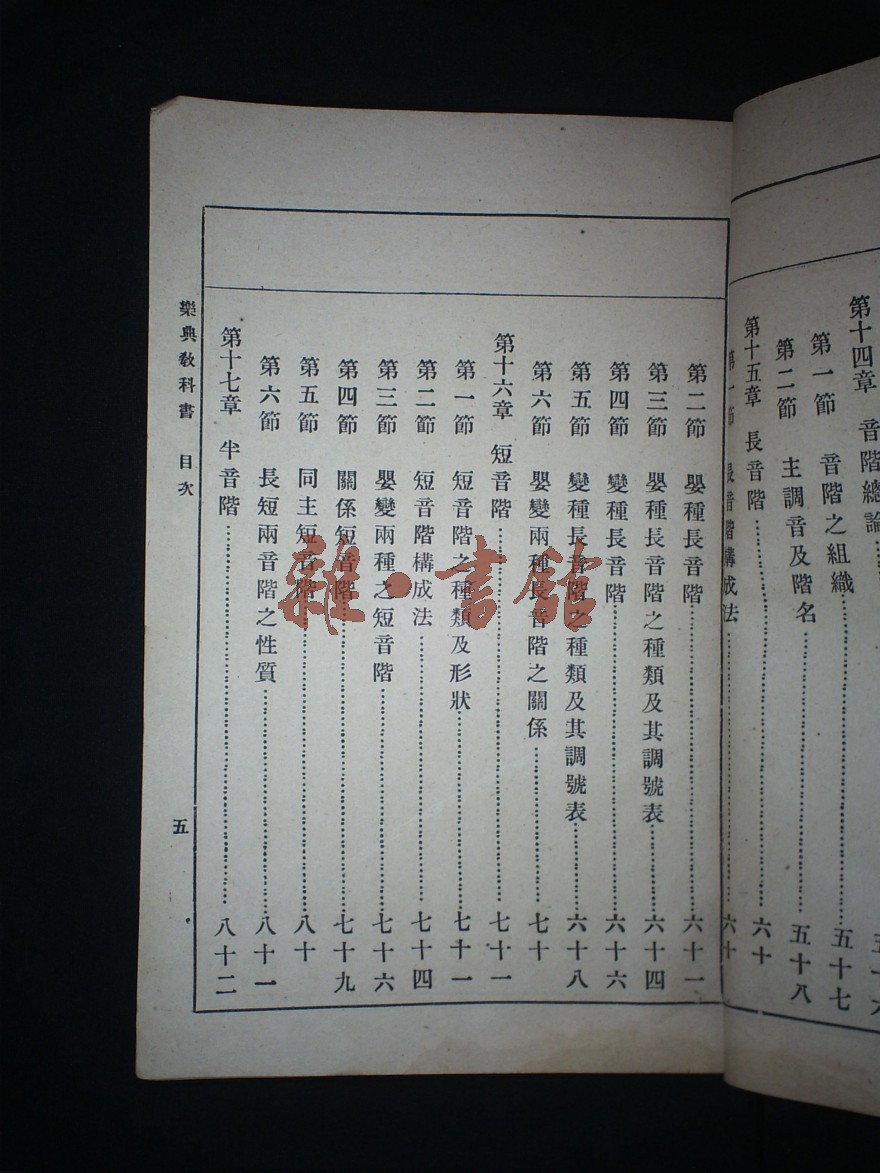 第十四章 音階總論
第一節 音階之組織 五十七
第二節 主調音及階名 五十八
第十五章 長音階 六十
第一節 長音階構成法 六十
第二節 嬰種長音階 六十一
第三節 嬰種長音階之種類及其調號表 六十四
第四節 變種長音階 六十六
第五節 變種長音階之種類及其調號表 六十八
第六節 嬰變兩種長音階之關係 七十
第十六章 短音階 七十一
第一節 短音階之種類及形狀 七十一
第二節 短音階構成法 七十四
第三節 嬰變兩種之短音階 七十六
第四節 關係短音階 七十九
第五節 同主短音階 八十
第六節 長短兩音階之性質 八十一
第十七章 半音階 八十二
樂典教科書 目次
五
雜·書館